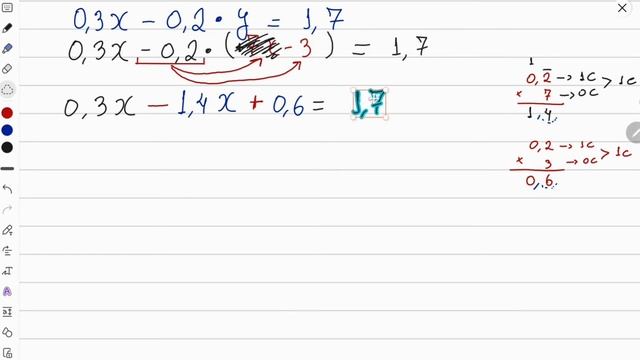 0,3x − 0,2 • y = 1,7
0,3x − 0,2 • ( − 3 ) = 1,7
0,3x − 1,4x + 0,6 = 1,7
1
0,2 → 1C
× 7 → 0C > 1C
1,4
0,2 → 1C
× 3 → 0C > 1C
0,6